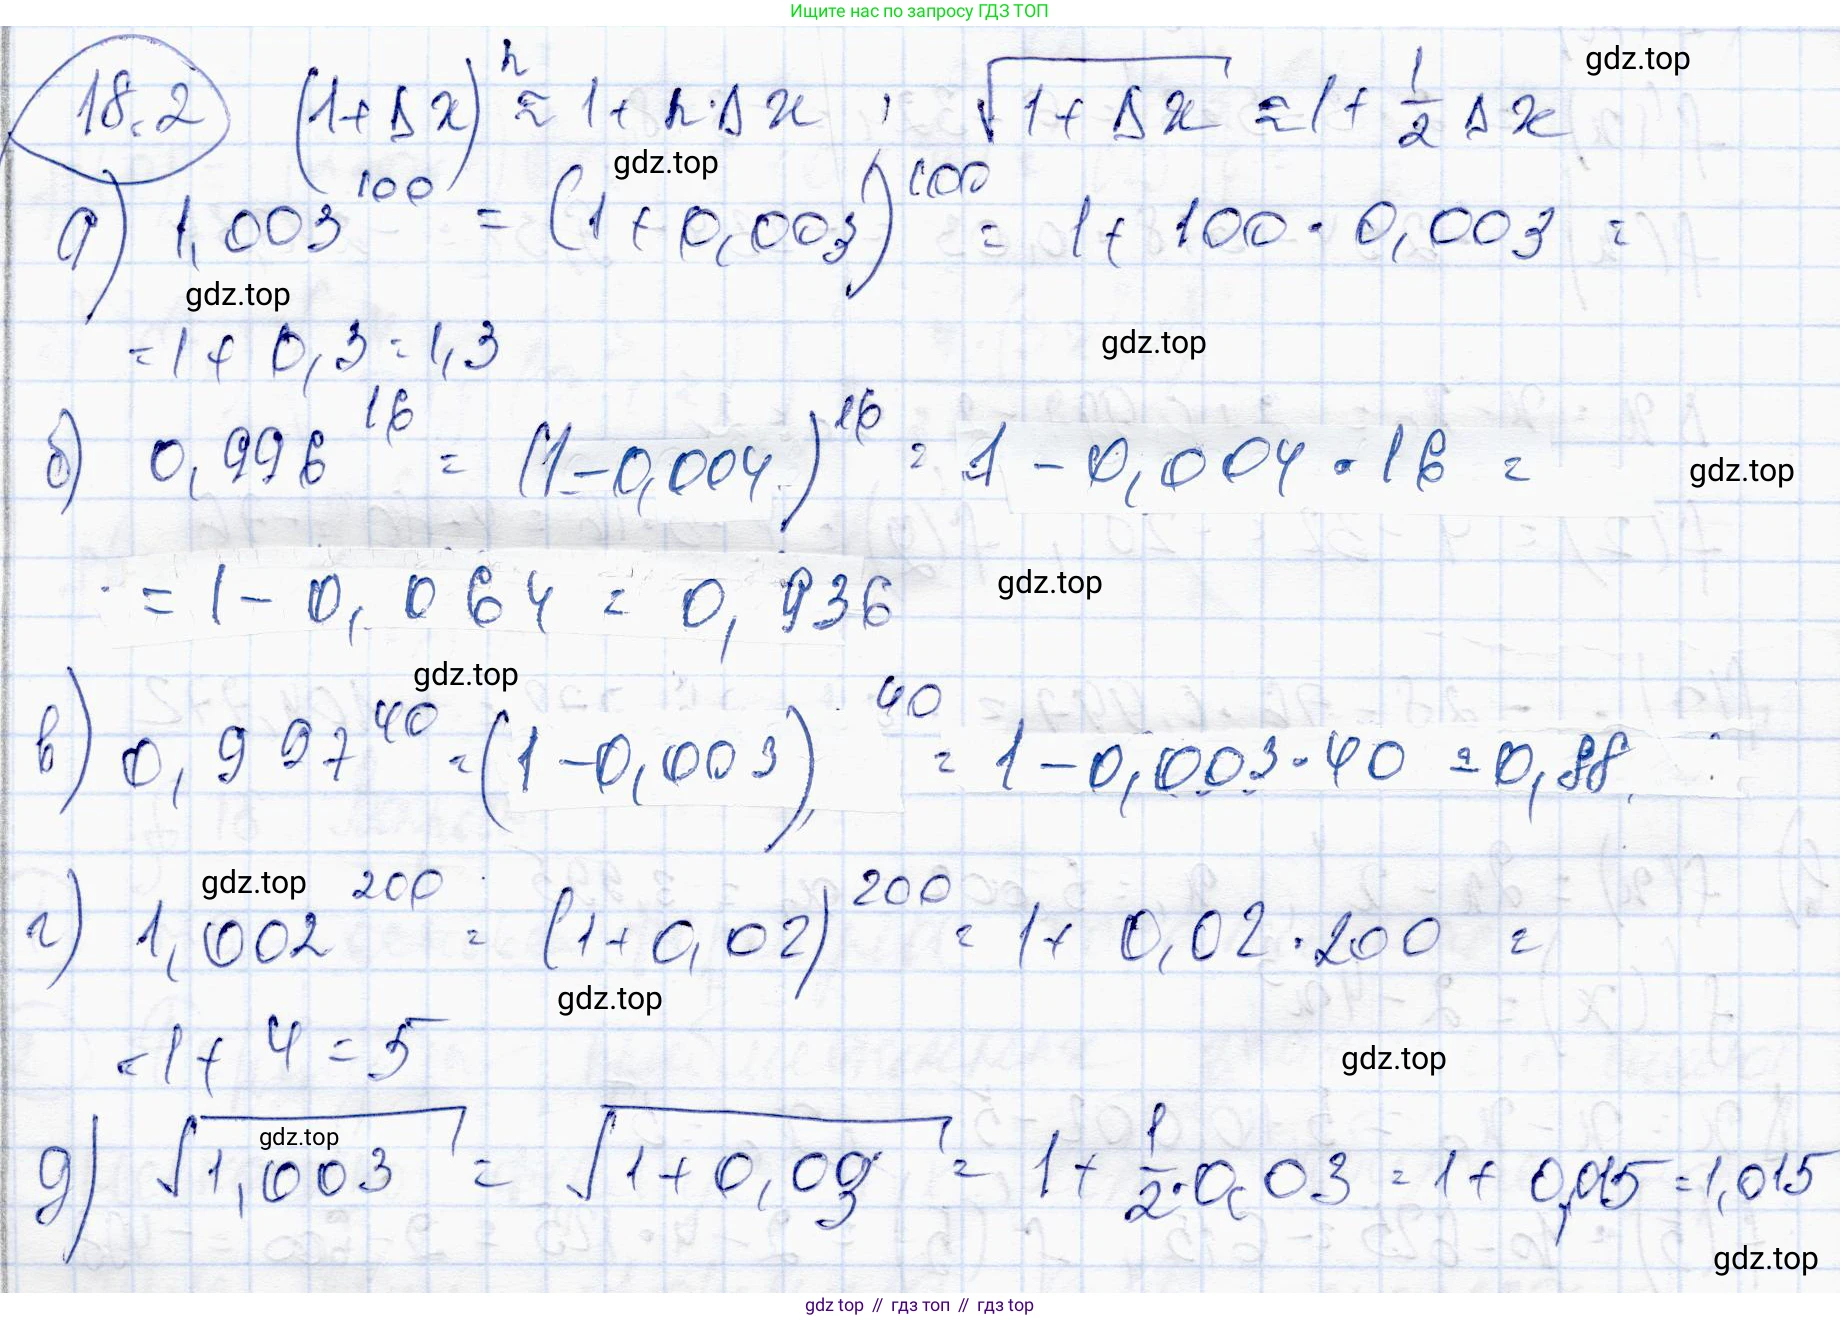 Ищите нас по запросу ГДЗ ТОП
gdz.top
18.2 (1+Δx)^n ≈ 1+n·Δx, √(1+Δx) ≈ 1+1/2 Δx
gdz.top
а) 1,003^100 = (1+0,003)^100 = 1+100·0,003 =
gdz.top
= 1+0,3 = 1,3
gdz.top
б) 0,996^16 = (1-0,004)^16 = 1-0,004·16 =
gdz.top
= 1-0,064 = 0,936
gdz.top
gdz.top
в) 0,997^40 = (1-0,003)^40 = 1-0,003·40 = 0,88
gdz.top
г) 1,002^200 = (1+0,02)^200 = 1+0,02·200 =
gdz.top
= 1+4 = 5
gdz.top
gdz.top
д) √1,003 = √(1+0,03) = 1+1/2·0,03 = 1+0,015 = 1,015
gdz.top
gdz top // гдз топ // гдз top